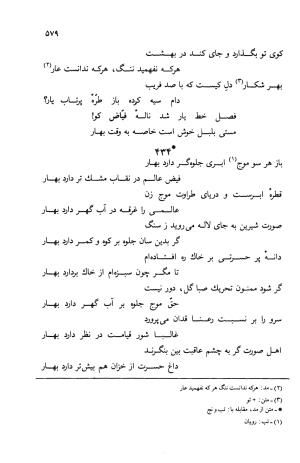 ۵۷۹
کوی تو بگذارد و جای کند در بهشت
هرکه نفهمید ننگ، هرکه ندانست عار (۲)
بهر شکار (۳) دل کیست که با صد فریب
دام سیه کرده باز طرّهٔ پرتاب یار؟
فصل خط یار شد نالهٔ فیّاض کو!
مستی بلبل خوش است خاصه به وقت بهار
*۴۳۴
باز هر سو موج (۱) ابری جلوه‌گر دارد بهار
فیض عالم در نقاب مشك تر دارد بهار
قطرهٔ ابرست و دریای طراوت موج زن
عالمی را غرقه در آب گهر دارد بهار
صورت شیرین به جای لاله می‌روید ز سنگ
گر بدین سان جلوه بر کوه و کمر دارد بهار
دانهٔ پر حسرتی بر خاك ره افتاده‌ام
تا مگر چون سبزه‌ام از خاك بردارد بهار
گر شود ممنون تحریك صبا گل، دور نیست
حقّ موج جلوه بر آب گهر دارد بهار
سرو را بر نسبت رعنا قدان می‌پرورد
غالباً شور قیامت در نظر دارد بهار
اهل صورت گر به چشم عاقبت بین بنگرند
داغ حسرت از خزان هم بیش‌تر دارد بهار
(۲) ـ مد: هرکه ندانست ننگ هر که نفهمید عار
(۳) ـ متن: + تو
* ـ متن از مد، مقابله با: تب و نج
(۱) ـ تب: رویان